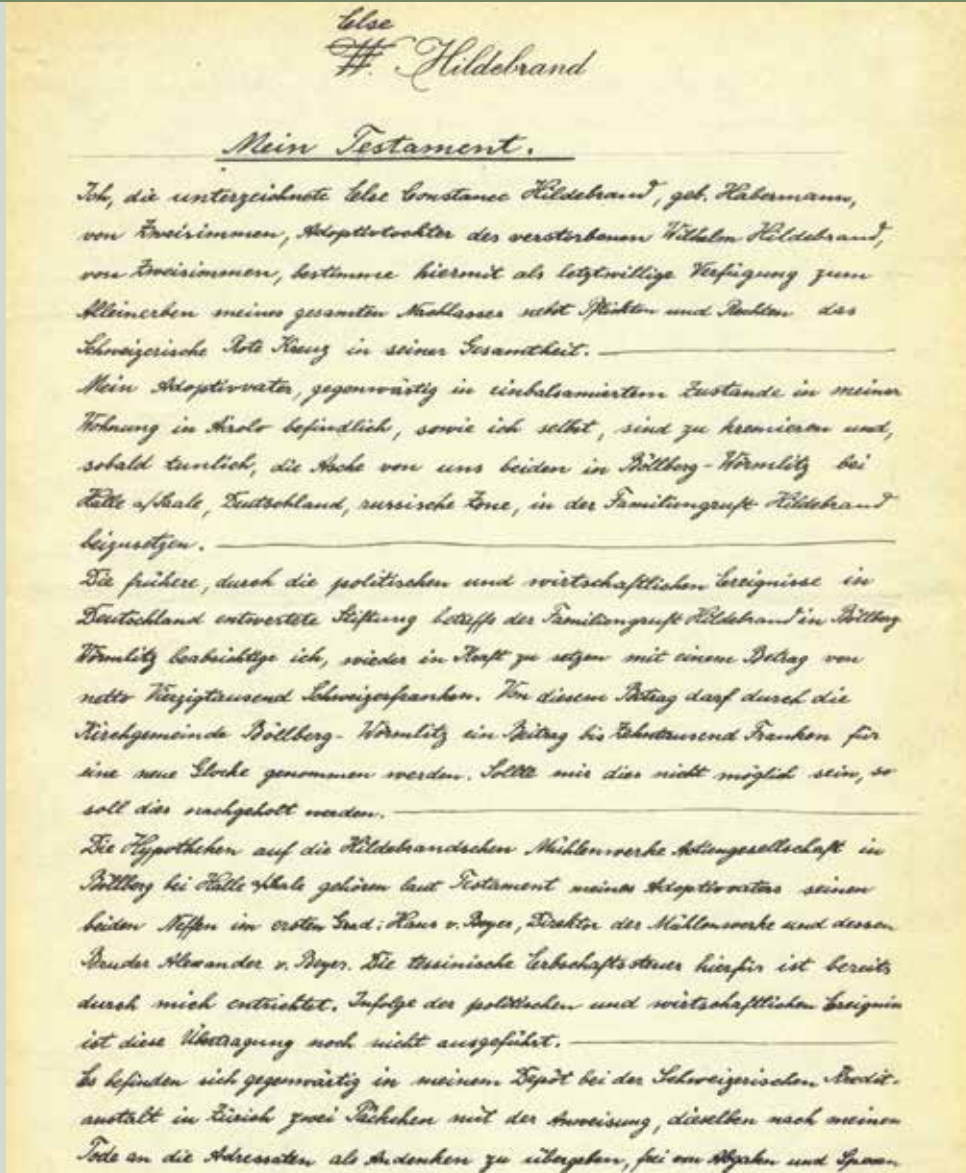 Else
W. Hildebrand
Mein Testament.
Ich, die unterzeichnete Else Constance Hildebrand, geb. Habermann,
von Zweisimmen, Adoptivtochter des verstorbenen Wilhelm Hildebrand,
von Zweisimmen, bestimme hiermit als letztwillige Verfügung zum
Alleinerben meines gesamten Nachlasses nebst Pflichten und Rechten das
Schweizerische Rote Kreuz in seiner Gesamtheit.
Mein Adoptivvater, gegenwärtig in einbalsamiertem Zustande in meiner
Wohnung in Airolo befindlich, sowie ich selbst, sind zu kremieren und,
sobald tunlich, die Asche von uns beiden in Böllberg-Wörmlitz bei
Halle a/Saale, Deutschland, russische Zone, in der Familiengruft Hildebrand
beizusetzen.
Die frühere, durch die politischen und wirtschaftlichen Ereignisse in
Deutschland entwertete Stiftung betreffs der Familiengruft Hildebrand in Böllberg
Wörmlitz beabsichtige ich, wieder in Kraft zu setzen mit einem Betrag von
netto Vierzigtausend Schweizerfranken. Von diesem Betrag darf durch die
Kirchgemeinde Böllberg-Wörmlitz ein Beitrag bis Zehntausend Franken für
eine neue Glocke genommen werden. Sollte mir dies nicht möglich sein, so
soll dies nachgeholt werden.
Die Hypotheken auf die Hildebrandschen Mühlenwerke Aktiengesellschaft in
Böllberg bei Halle a/Saale gehören laut Testament meines Adoptivvaters seinen
beiden Neffen im ersten Grad: Hans v. Beyer, Direktor der Mühlenwerke und dessen
Bruder Alexander v. Beyer. Die tessinische Erbschaftssteuer hierfür ist bereits
durch mich entrichtet. Infolge der politischen und wirtschaftlichen Ereignisse
ist diese Übertragung noch nicht ausgeführt.
Es befinden sich gegenwärtig in meinem Depôt bei der Schweizerischen Kredit-
anstalt in Zürich zwei Päckchen mit der Anweisung, dieselben nach meinem
Tode an die Adressaten als Andenken zu übergeben, frei von Abgaben und Spesen